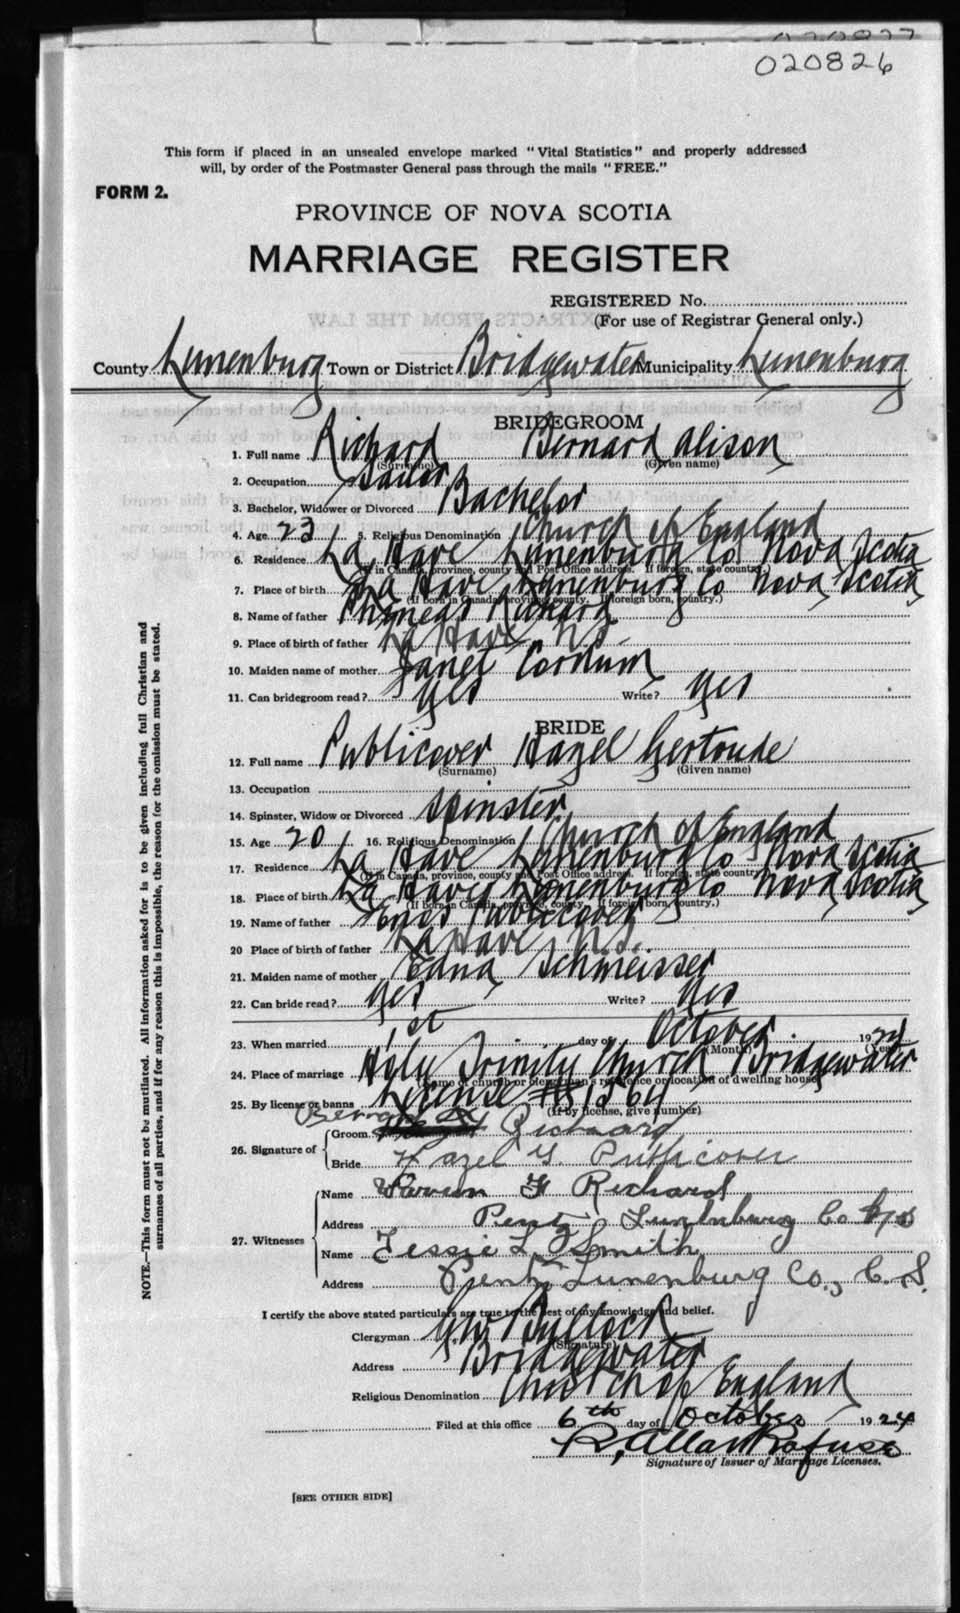 020826
This form if placed in an unsealed envelope marked "Vital Statistics" and properly addressed
will, by order of the Postmaster General pass through the mails "FREE."
FORM 2.
PROVINCE OF NOVA SCOTIA
MARRIAGE REGISTER
REGISTERED No.
(For use of Registrar General only.)
County Lunenburg Town or District Bridgewater Municipality Lunenburg
BRIDEGROOM
1. Full name Richard Bernard Alison
(Surname) (Given name)
2. Occupation Sailor
3. Bachelor, Widower or Divorced Bachelor
4. Age 23 5. Religious Denomination Church of England
6. Residence La Have Lunenburg Co Nova Scotia
(If in Canada, province, county and Post Office address. If foreign, state country.)
7. Place of birth La Have Lunenburg Co Nova Scotia
(If born in Canada, province, county. If foreign born, country.)
8. Name of father Richard
9. Place of birth of father La Have N.S.
10. Maiden name of mother Janet
11. Can bridegroom read? Yes Write? Yes
BRIDE
12. Full name Publicover Hazel Gertrude
(Surname) (Given name)
13. Occupation
14. Spinster, Widow or Divorced Spinster
15. Age 20 16. Religious Denomination Church of England
17. Residence La Have Lunenburg Co Nova Scotia
(If in Canada, province, county and Post Office address. If foreign, state country.)
18. Place of birth La Have Lunenburg Co Nova Scotia
(If born in Canada, province, county. If foreign born, country.)
19. Name of father Enos Publicover
20 Place of birth of father La Have N.S.
21. Maiden name of mother Edna Schmeisser
22. Can bride read? Yes Write? Yes
23. When married 1st day of October 1924
(Month) (Year)
24. Place of marriage Holy Trinity Church Bridgewater
(Name of church or clergyman's residence or location of dwelling house)
25. By license or banns License # 1564
(If by license, give number)
26. Signature of
Groom Richard
Bride Hazel G Publicover
27. Witnesses
Name Richard
Address Pentz Lunenburg Co
Name Tessie L Smith
Address Pentz, Lunenburg Co., C. S.
I certify the above stated particulars are true to the best of my knowledge and belief.
Clergyman G.W. Bullock
(Signature)
Address Bridgewater
Religious Denomination Church of England
Filed at this office 6th day of October 1924
R. Allan Rofuse
Signature of Issuer of Marriage Licenses.
[SEE OTHER SIDE]
NOTE.—This form must not be mutilated. All information asked for is to be given including full Christian and
surnames of all parties, and if for any reason this is impossible, the reason for the omission must be stated.